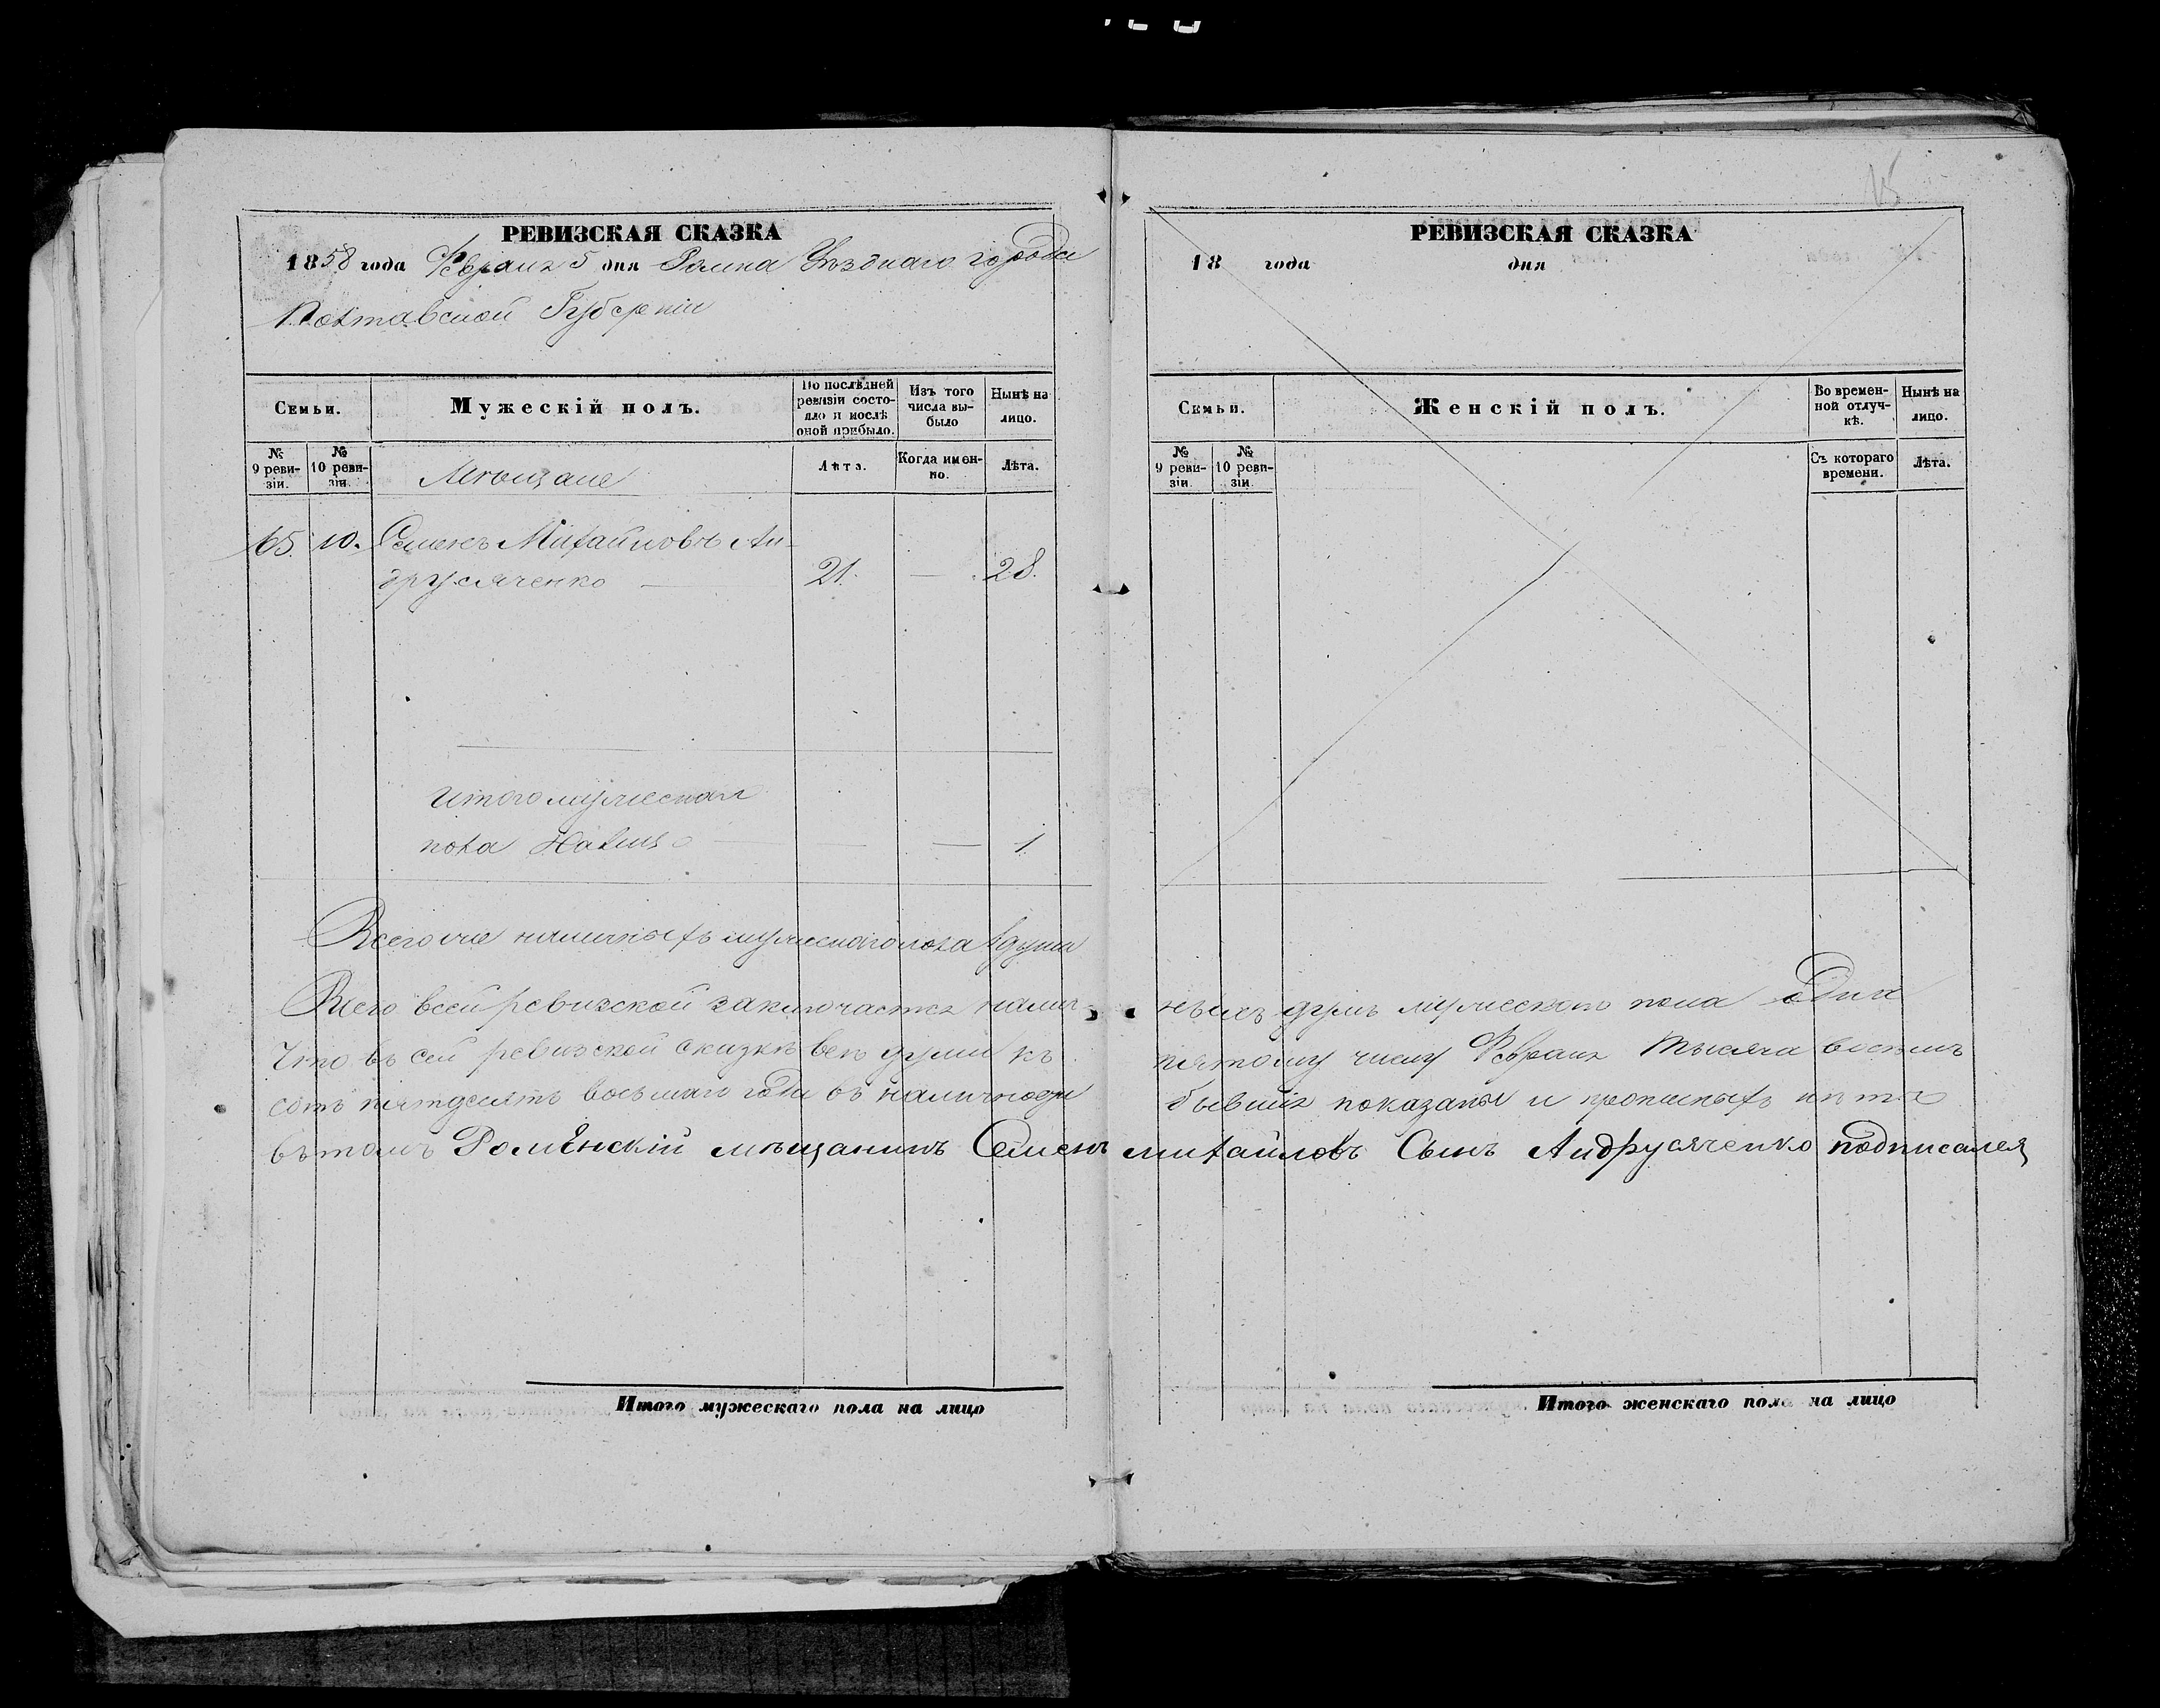 РЕВИЗСКАЯ СКАЗКА
1858 года Февраля 5 дня Ромна Уѣзднаго города
Полтавской Губерніи
Семьи.
Мужескій полъ.
По послѣдней ревизіи состояло и послѣ оной прибыло.
Изъ того числа выбыло
Нынѣ на лицо.
№ 9 ревизіи.
№ 10 ревизіи.
Мѣщане
Лѣта.
Когда именно.
Лѣта.
65. 10. Семенъ Михайловъ Ан-
друсяченко — 21. — 28.
Итого мужеска
пола налицо — — 1
Всего наличныхъ мужескаго пола 1 душа
Итого мужескаго пола на лицо
15
РЕВИЗСКАЯ СКАЗКА
18 года дня
Семьи.
Женскій полъ.
Во временной отлучкѣ.
Нынѣ на лицо.
№ 9 ревизіи.
№ 10 ревизіи.
Съ котораго времени.
Лѣта.
Всего всей ревизской заключается налич- ныхъ душъ мужескаго пола одна
Что въ сей ревизской сказкѣ всѣ души къ пятому числу Февраля тысяча восемь
сотъ пятдесятъ восьмаго года въ наличности бывшія показаны и прописныхъ нѣтъ
въ томъ Роменскій мѣщанинъ Семенъ михайловъ Сынъ Андрусяченко подписался
Итого женскаго пола на лицо